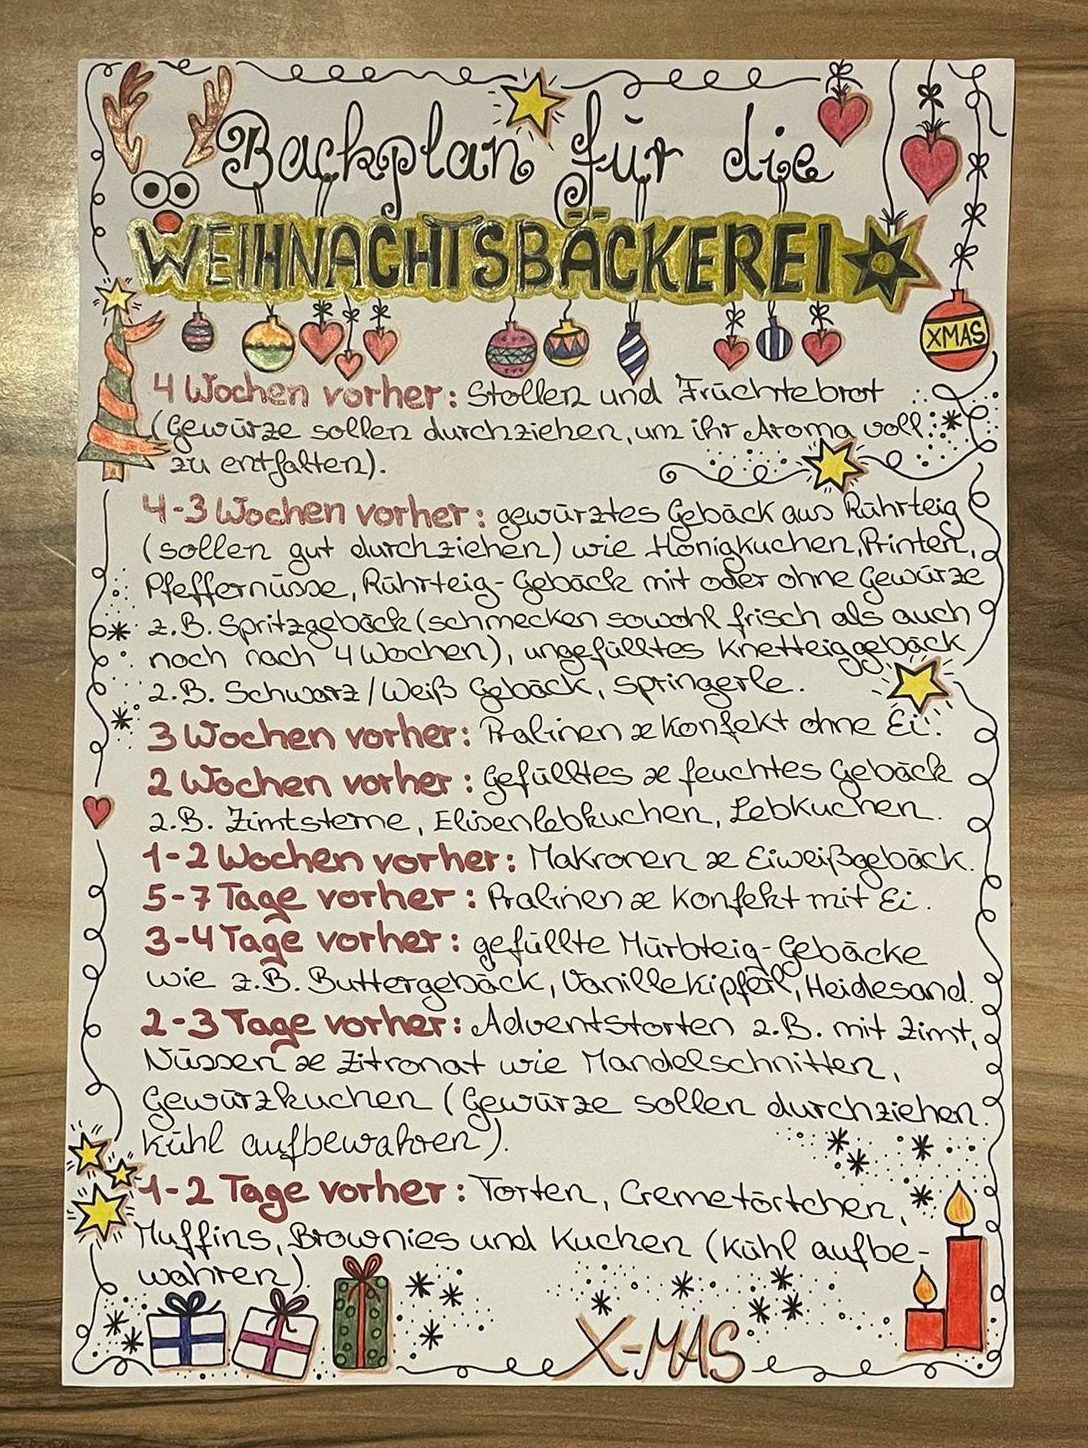 Backplan für die
WEIHNACHTSBÄCKEREI
XMAS
4 Wochen vorher: Stollen und Früchtebrot
(Gewürze sollen durchziehen, um ihr Aroma voll
zu entfalten).
4-3 Wochen vorher: gewürztes Gebäck aus Rührteig
(sollen gut durchziehen) wie Honigkuchen, Printen,
Pfeffernüsse, Rührteig-Gebäck mit oder ohne Gewürze
z.B. Spritzgebäck (schmecken sowohl frisch als auch
noch nach 4 Wochen), ungefülltes Knetteiggebäck
z.B. Schwarz/Weiß Gebäck, Springerle.
3 Wochen vorher: Pralinen & Konfekt ohne Ei.
2 Wochen vorher: Gefülltes & feuchtes Gebäck
z.B. Zimtsterne, Elisenlebkuchen, Lebkuchen.
1-2 Wochen vorher: Makronen & Eiweißgebäck.
5-7 Tage vorher: Pralinen & Konfekt mit Ei.
3-4 Tage vorher: gefüllte Mürbteig-Gebäcke
wie z.B. Buttergebäck, Vanillekipferl, Heidesand.
2-3 Tage vorher: Adventstorten z.B. mit Zimt,
Nüssen & Zitronat wie Mandelschnitten,
Gewürzkuchen (Gewürze sollen durchziehen.
Kühl aufbewahren).
1-2 Tage vorher: Torten, Cremetörtchen,
Muffins, Brownies und Kuchen (Kühl aufbe-
wahren)
X-MAS